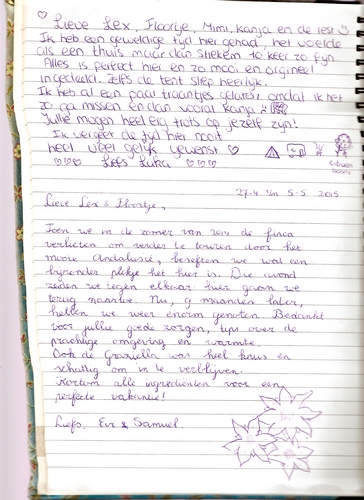 Lieve Lex, Floortje, Mimi, Kanja en de rest
Ik heb een geweldige tijd hier gehad, het voelde
als een thuis maar dan stiekem 10 keer zo fijn
Alles is perfect hier en zo mooi en origineel
ingedeeld. Zelfs de tent sliep heerlijk.
Ik heb al een paar traantjes gelaten omdat ik het
zo ga missen en dan vooral Kanja
Jullie mogen heel erg trots op je zelf zijn!
Ik vergeet de tijd hier nooit
heel veel geluk gewenst
Liefs Luka
27-4 t/m 5-5 2015
Lieve Lex & Floortje,
Toen we in de zomer van 2014 de finca
verlieten om verder te touren door het
mooie Andalusië, beseften we wat een
bijzonder plekje het hier is. Die avond
zeiden we tegen elkaar hier gaan we
terug naartoe. Nu, 9 maanden later,
hebben we weer enorm genoten. Bedankt
voor jullie goede zorgen, tips over de
prachtige omgeving en warmte.
Ook de Graziella was heel knus en
schattig om in te verblijven.
Kortom alle ingrediënten voor een
perfecte vakantie!
Liefs, Eva & Samuel.